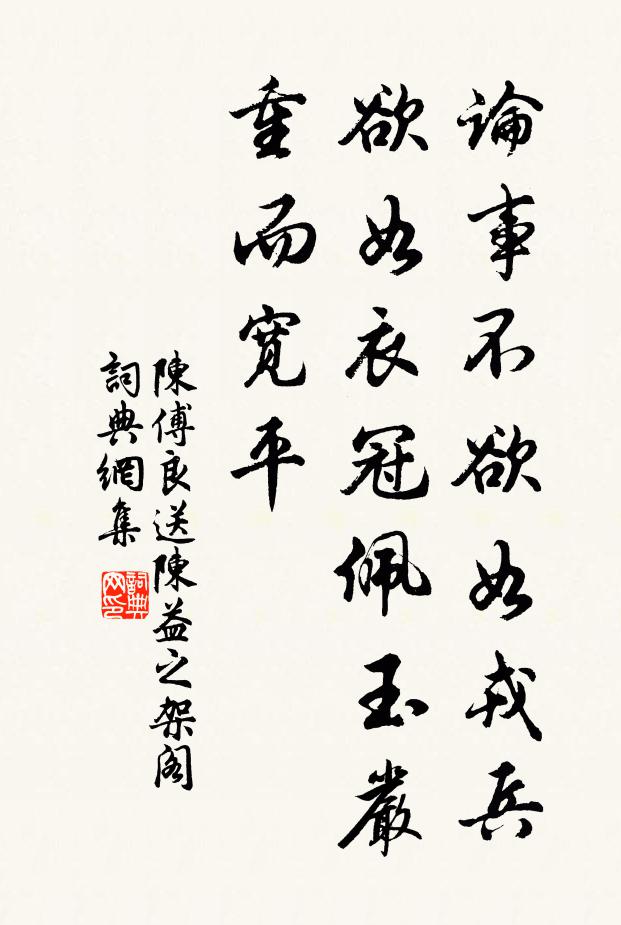 論事不欲如戎兵
欲如衣冠佩玉嚴
重而寬平
陳傅良送陳益之架閣
詞典網集
詞典
网印